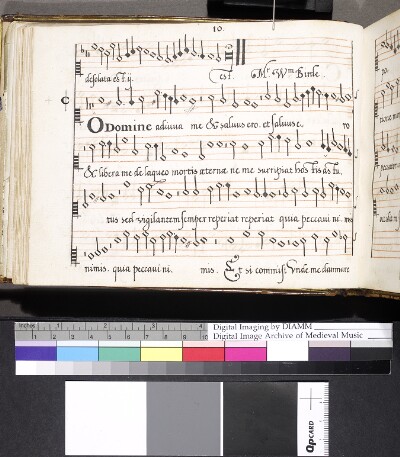 10.
desolata est. ij. est. Mr Wm Birde.
C
O Domine adiuua me & saluus ero. et saluus e. ro
& libera me de laqueo mortis æternæ ne me surripiat hostis
tus sed vigilantem semper reperiat reperiat quia peccaui ni. mis
nimis. quia peccaui ni. mis. Et si commisi. Vnde me damnare
Inches 1 2 3 4
1 2 3 4 5 6 7 8 9 10
Digital Imaging by DIAMM
Digital Image Archive of Medieval Music
QPCARD